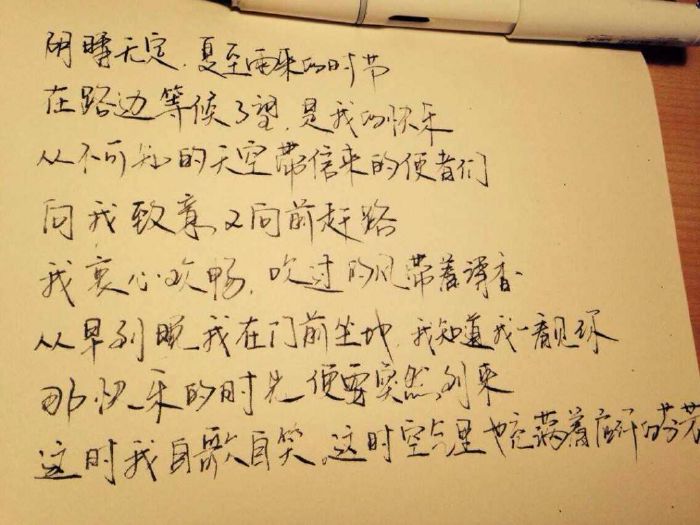 阴晴无定，夏至雨来的时节
在路边等候了望，是我的快乐
从不可知的天空带信来的使者们
向我致意又向前赶路
我衷心欢畅，吹过的风带着清香
从早到晚我在门前坐地，我知道我一看见你
那快乐的时光便要突然到来
这时我自歌自笑。这时空气里也充满着应许的芬芳